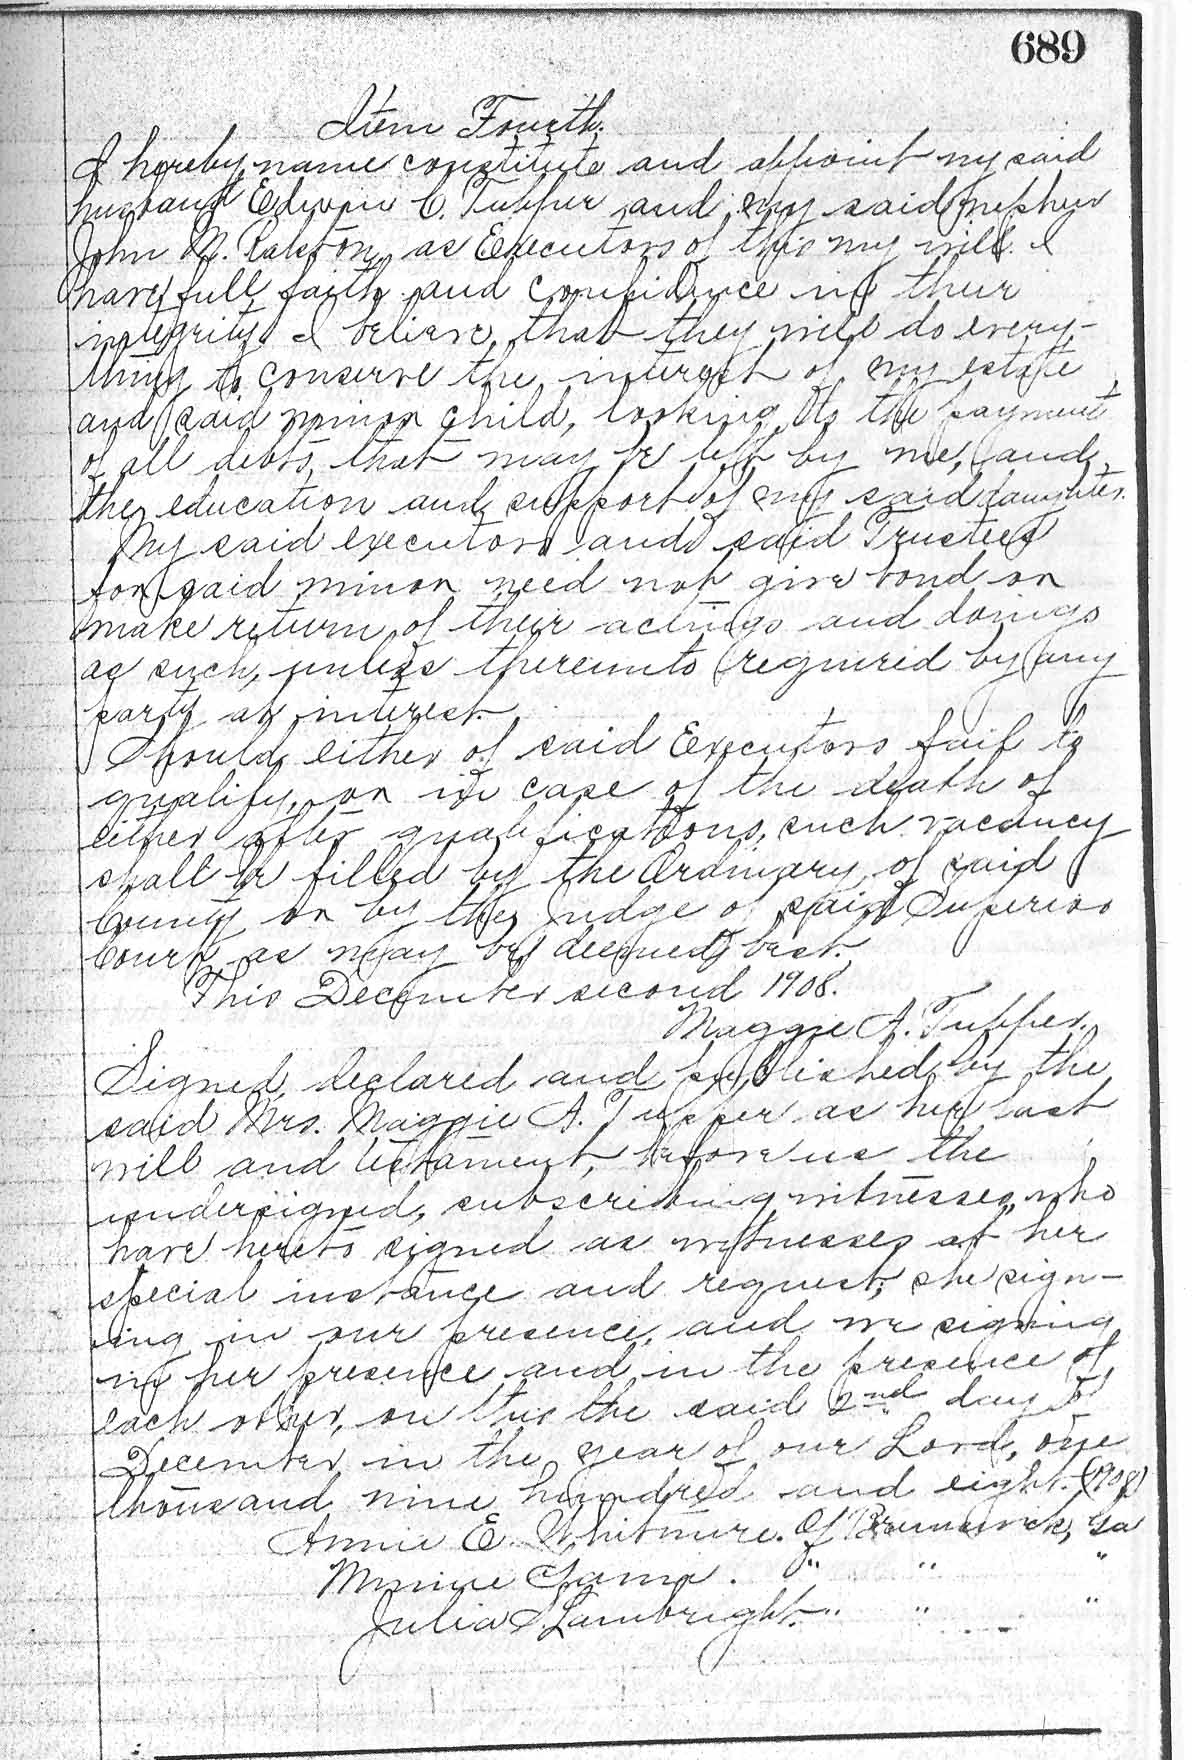 689
Item Fourth.
I hereby name constitute and appoint my said
husband Edwin C. Tupper and my said nephew
John M. Ralston, as Executors of this my will. I
have full faith and confidence in their
integrity. I believe, that they will do every-
thing to conserve the interest of my estate
and said minor child, looking to the payment
of all debts, that may be left by me, and
the education and support of my said daughter.
My said executors and said Trustees
for said minor need not give bond or
make return of their actings and doings
as such, unless thereunto required by any
party at interest.
Should either of said Executors fail to
qualify, or in case of the death of
either after qualifications, such vacancy
shall be filled by the Ordinary of said
County or by the Judge of said Superior
Court as may be deemed best.
This December second 1908.
Maggie A. Tupper.
Signed, declared and published by the
said Mrs. Maggie A. Tupper as her last
will and testament, before us the
undersigned, subscribing witnesses, who
have hereto signed as witnesses at her
special instance and request, she sign-
ing in our presence, and we signing
in her presence and in the presence of
each other, on this the said 2nd day of
December in the year of our Lord, one
thousand nine hundred and eight. (1908)
Annie E. Whitmire. Of Brunswick, Ga
Minnie . " " "
Julia S. Lambright. " " "